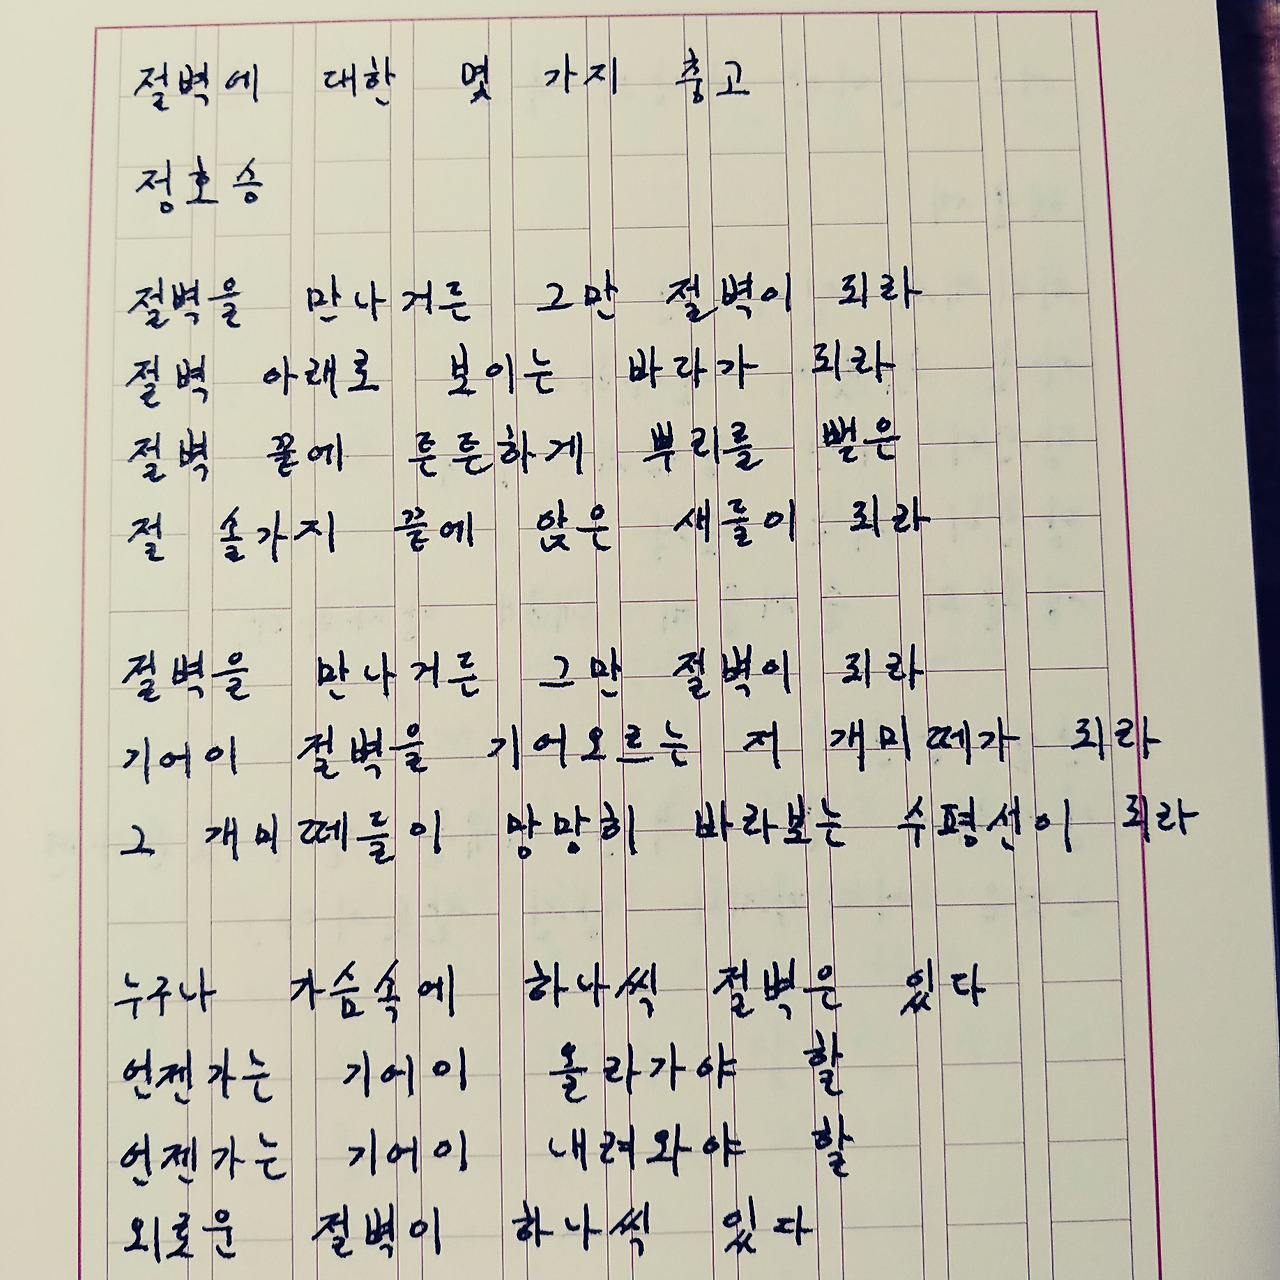 절벽에 대한 몇 가지 충고
정호승
절벽을 만나거든 그만 절벽이 되라
절벽 아래로 보이는 바다가 되라
절벽 끝에 튼튼하게 뿌리를 뻗은
절 솔가지 끝에 앉은 새들이 되라
절벽을 만나거든 그만 절벽이 되라
기어이 절벽을 기어오르는 저 개미떼가 되라
그 개미떼들이 망망히 바라보는 수평선이 되라
누구나 가슴속에 하나씩 절벽은 있다
언젠가는 기어이 올라가야 할
언젠가는 기어이 내려와야 할
외로운 절벽이 하나씩 있다